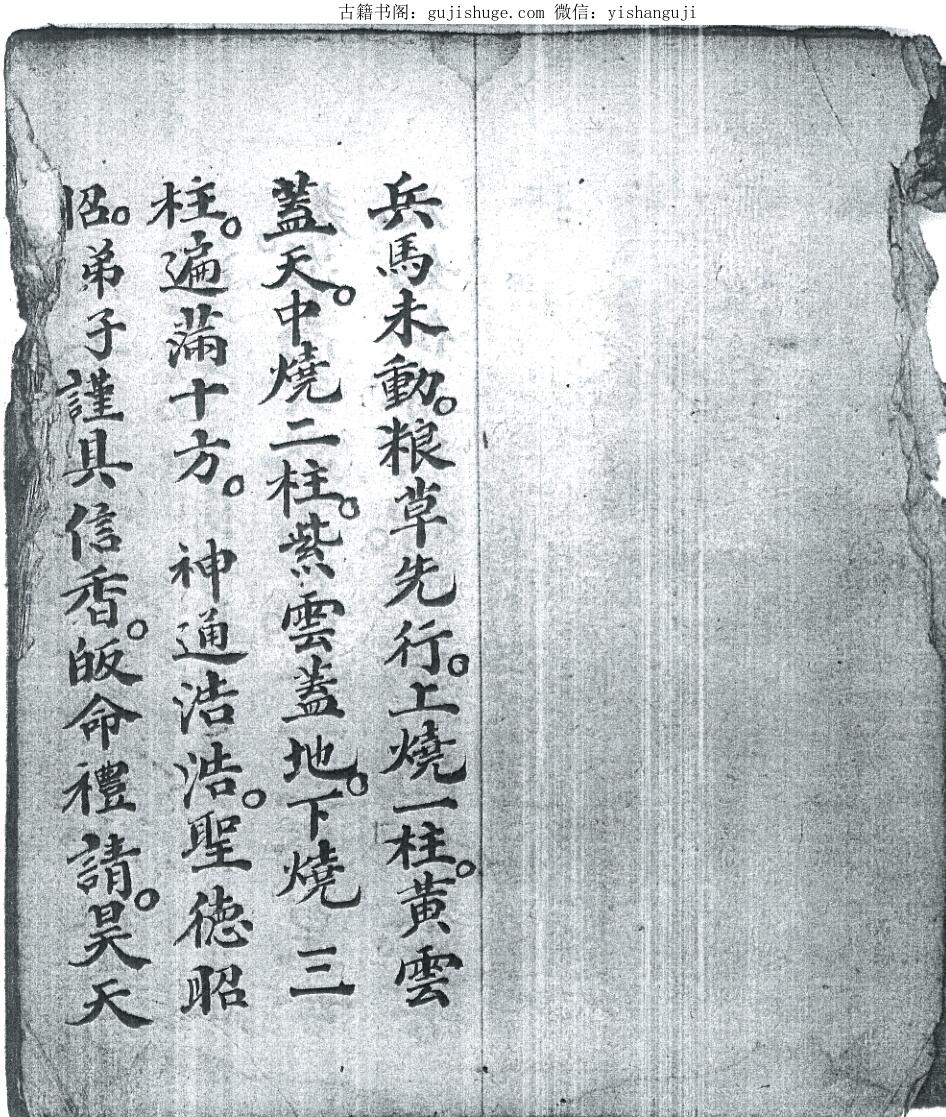 古籍书阁：gujishuge.com 微信：yishanguji
兵馬未動。粮草先行。上燒一柱。黃雲
蓋天。中燒二柱。紫雲蓋地。下燒三
柱。遍滿十方。神通浩浩。聖德昭
昭。弟子謹具信香。皈命禮請。昊天